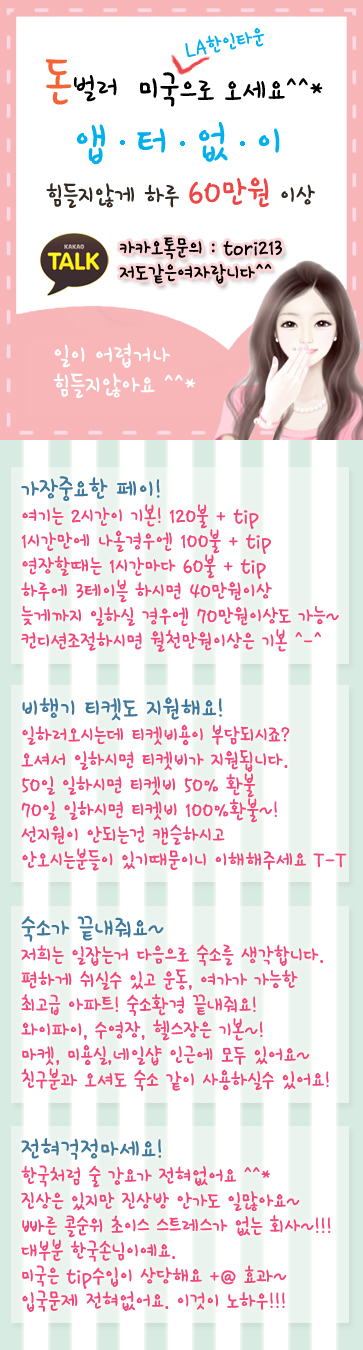 LA한인타운
돈벌러 미국으로 오세요^^*
앱·터·없·이
힘들지않게 하루 60만원 이상
KAKAO
TALK
카카오톡문의 : tori213
저도같은여자랍니다^^
일이 어렵거나
힘들지않아요 ^^*
가장중요한 페이!
여기는 2시간이 기본! 120불 + tip
1시간만에 나올경우엔 100불 + tip
연장할때는 1시간마다 60불 + tip
하루에 3테이블 하시면 40만원이상
늦게까지 일하실 경우엔 70만원이상도 가능~
컨디션조절하시면 월천만원이상은 기본 ^-^
비행기 티켓도 지원해요!
일하러오시는데 티켓비용이 부담되시죠?
오셔서 일하시면 티켓비가 지원됩니다.
50일 일하시면 티켓비 50% 환불
70일 일하시면 티켓비 100%환불~!
선지원이 안되는건 캔슬하시고
안오시는분들이 있기때문이니 이해해주세요 T-T
숙소가 끝내줘요~
저희는 일잡는거 다음으로 숙소를 생각합니다.
편하게 쉬실수 있고 운동, 여가가 가능한
최고급 아파트! 숙소환경 끝내줘요!
와이파이, 수영장, 헬스장은 기본~!
마켓, 미용실,네일샵 인근에 모두 있어요~
친구분과 오셔도 숙소 같이 사용하실수 있어요!
전혀걱정마세요!
한국처럼 술 강요가 전혀없어요 ^^*
진상은 있지만 진상방 안가도 일많아요~
빠른 콜순위 초이스 스트레스가 없는 회사~!!!
대부분 한국손님이예요.
미국은 tip수입이 상당해요 +@ 효과~
입국문제 전혀없어요. 이것이 노하우!!!